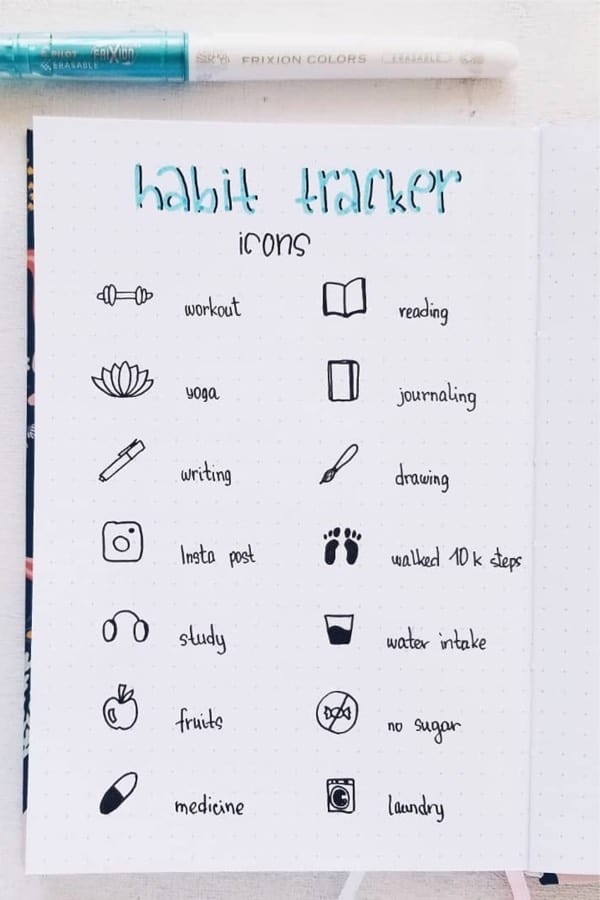 PILOT FRIXION FRIXION COLORS ERASABLE
ERASABLE
habit tracker
icons
workout
reading
yoga
journaling
writing
drawing
Insta post
walked 10k steps
study
water intake
fruits
no sugar
medicine
laundry